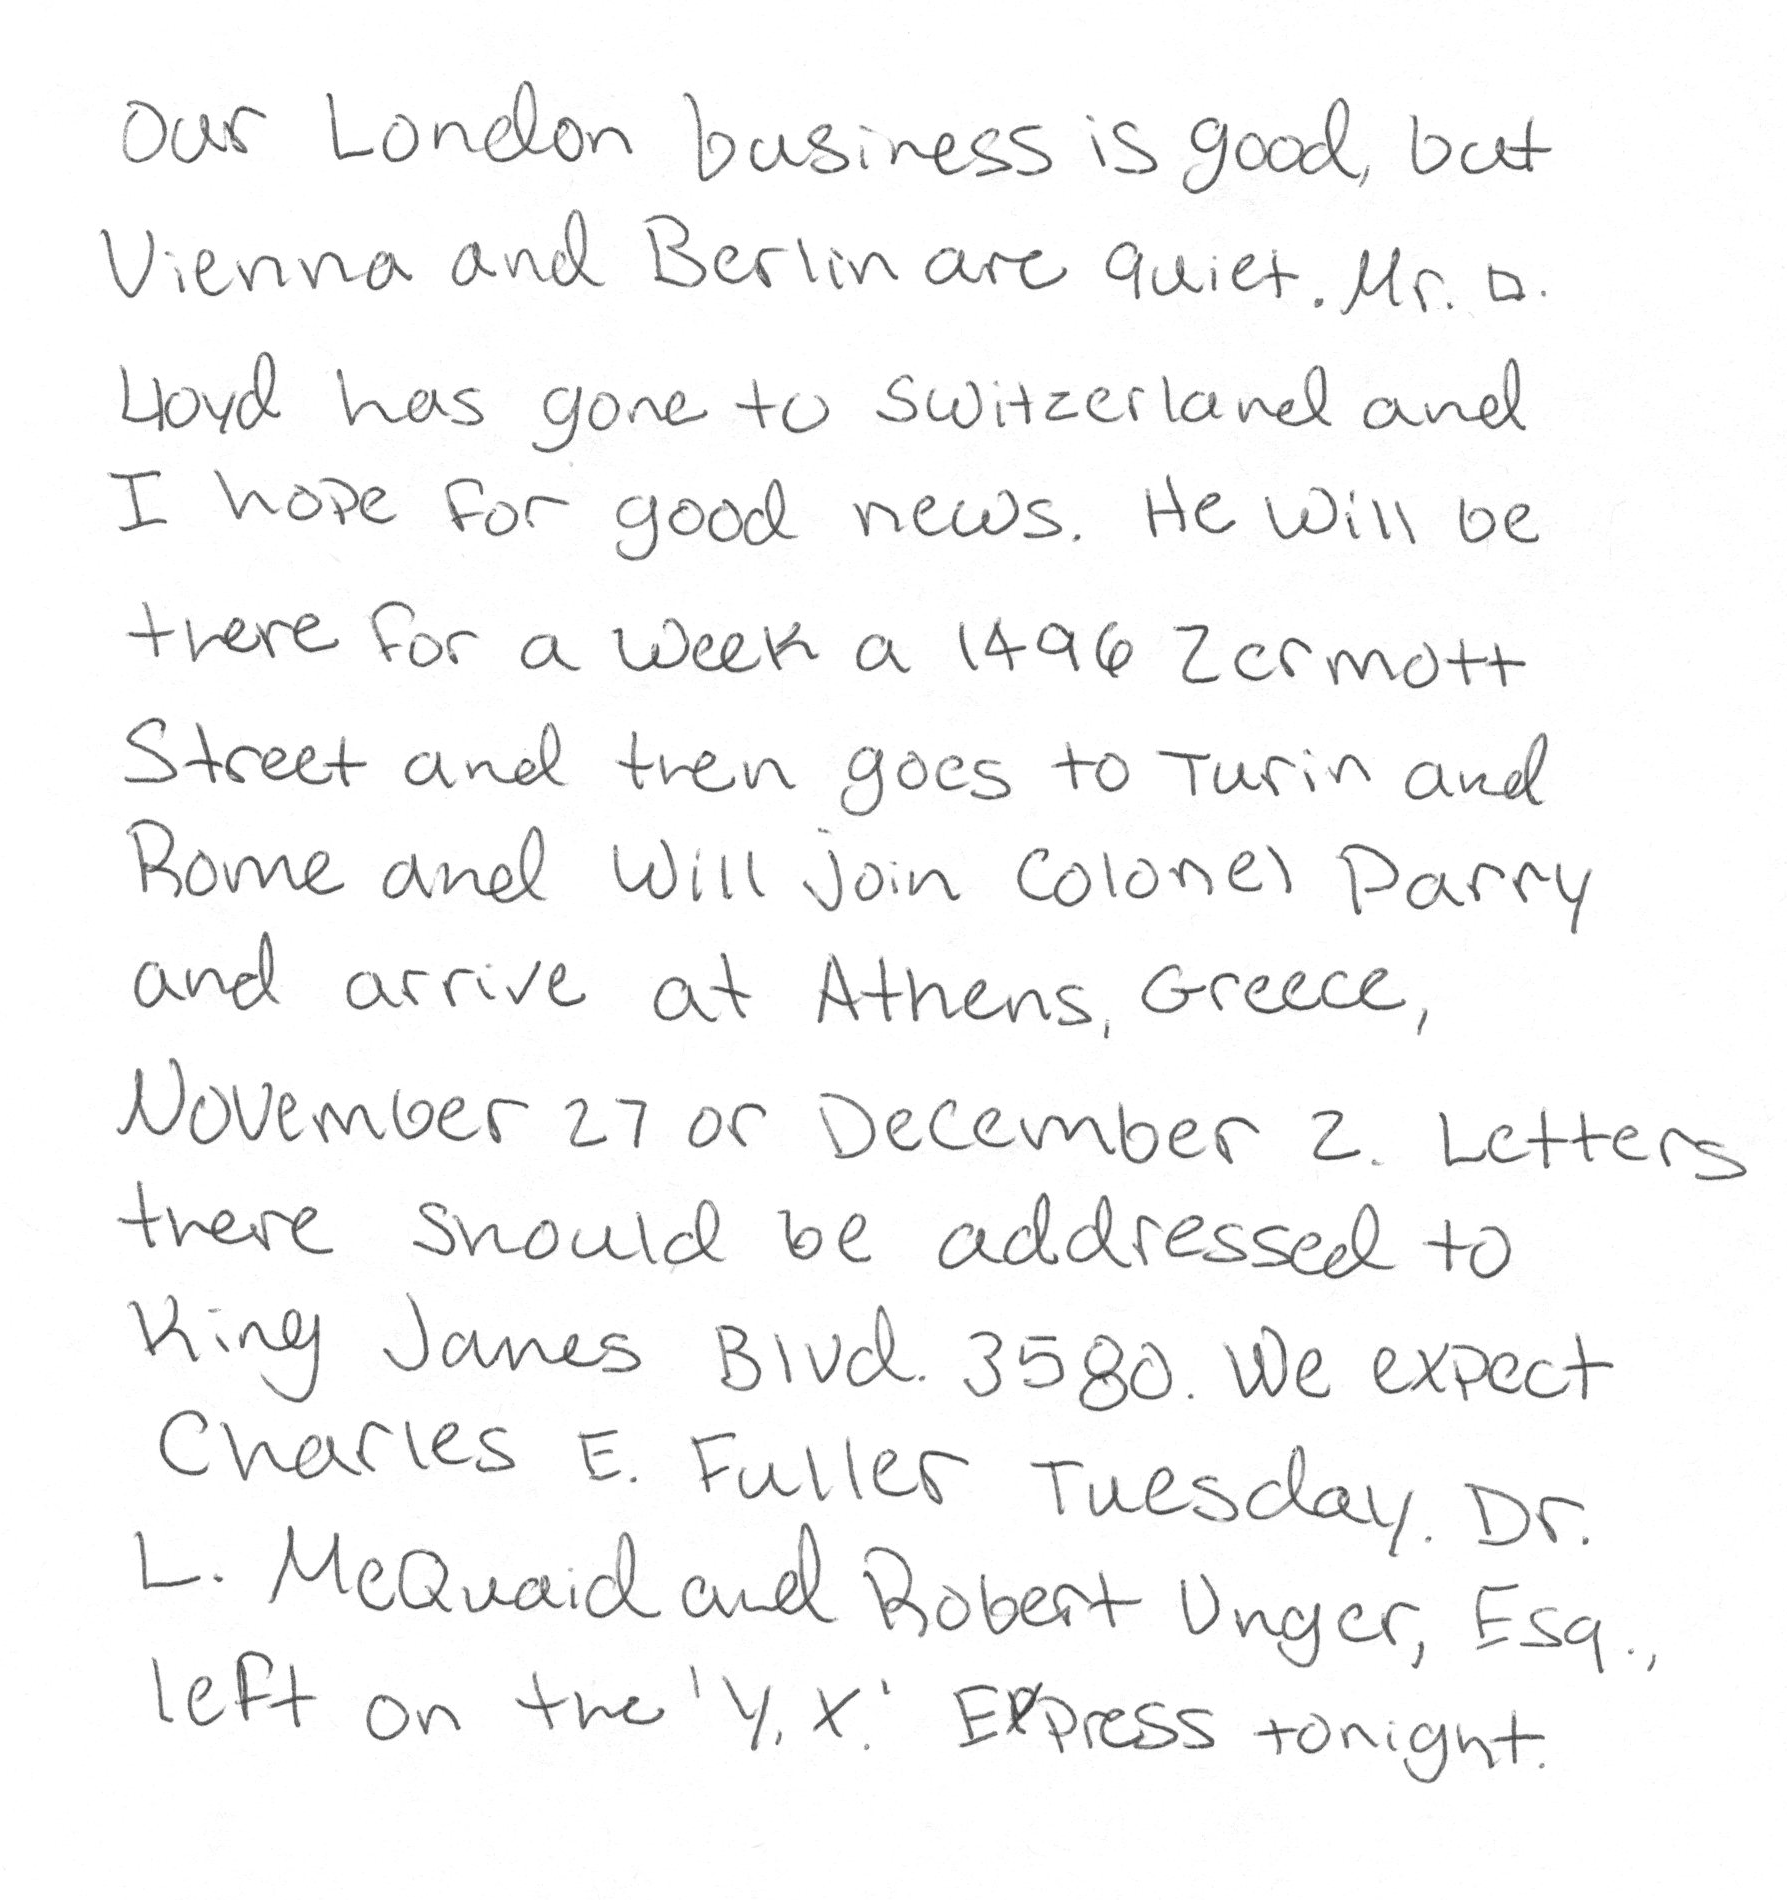 Our London business is good, but
Vienna and Berlin are quiet. Mr. D.
Lloyd has gone to Switzerland and
I hope for good news. He will be
there for a week a 1496 Zermott
Street and then goes to Turin and
Rome and will join Colonel Parry
and arrive at Athens, Greece,
November 27 or December 2. Letters
there should be addressed to
King James Blvd. 3580. We expect
Charles E. Fuller Tuesday. Dr.
L. McQuaid and Robert Unger, Esq.,
left on the 'Y.X.' Express tonight.